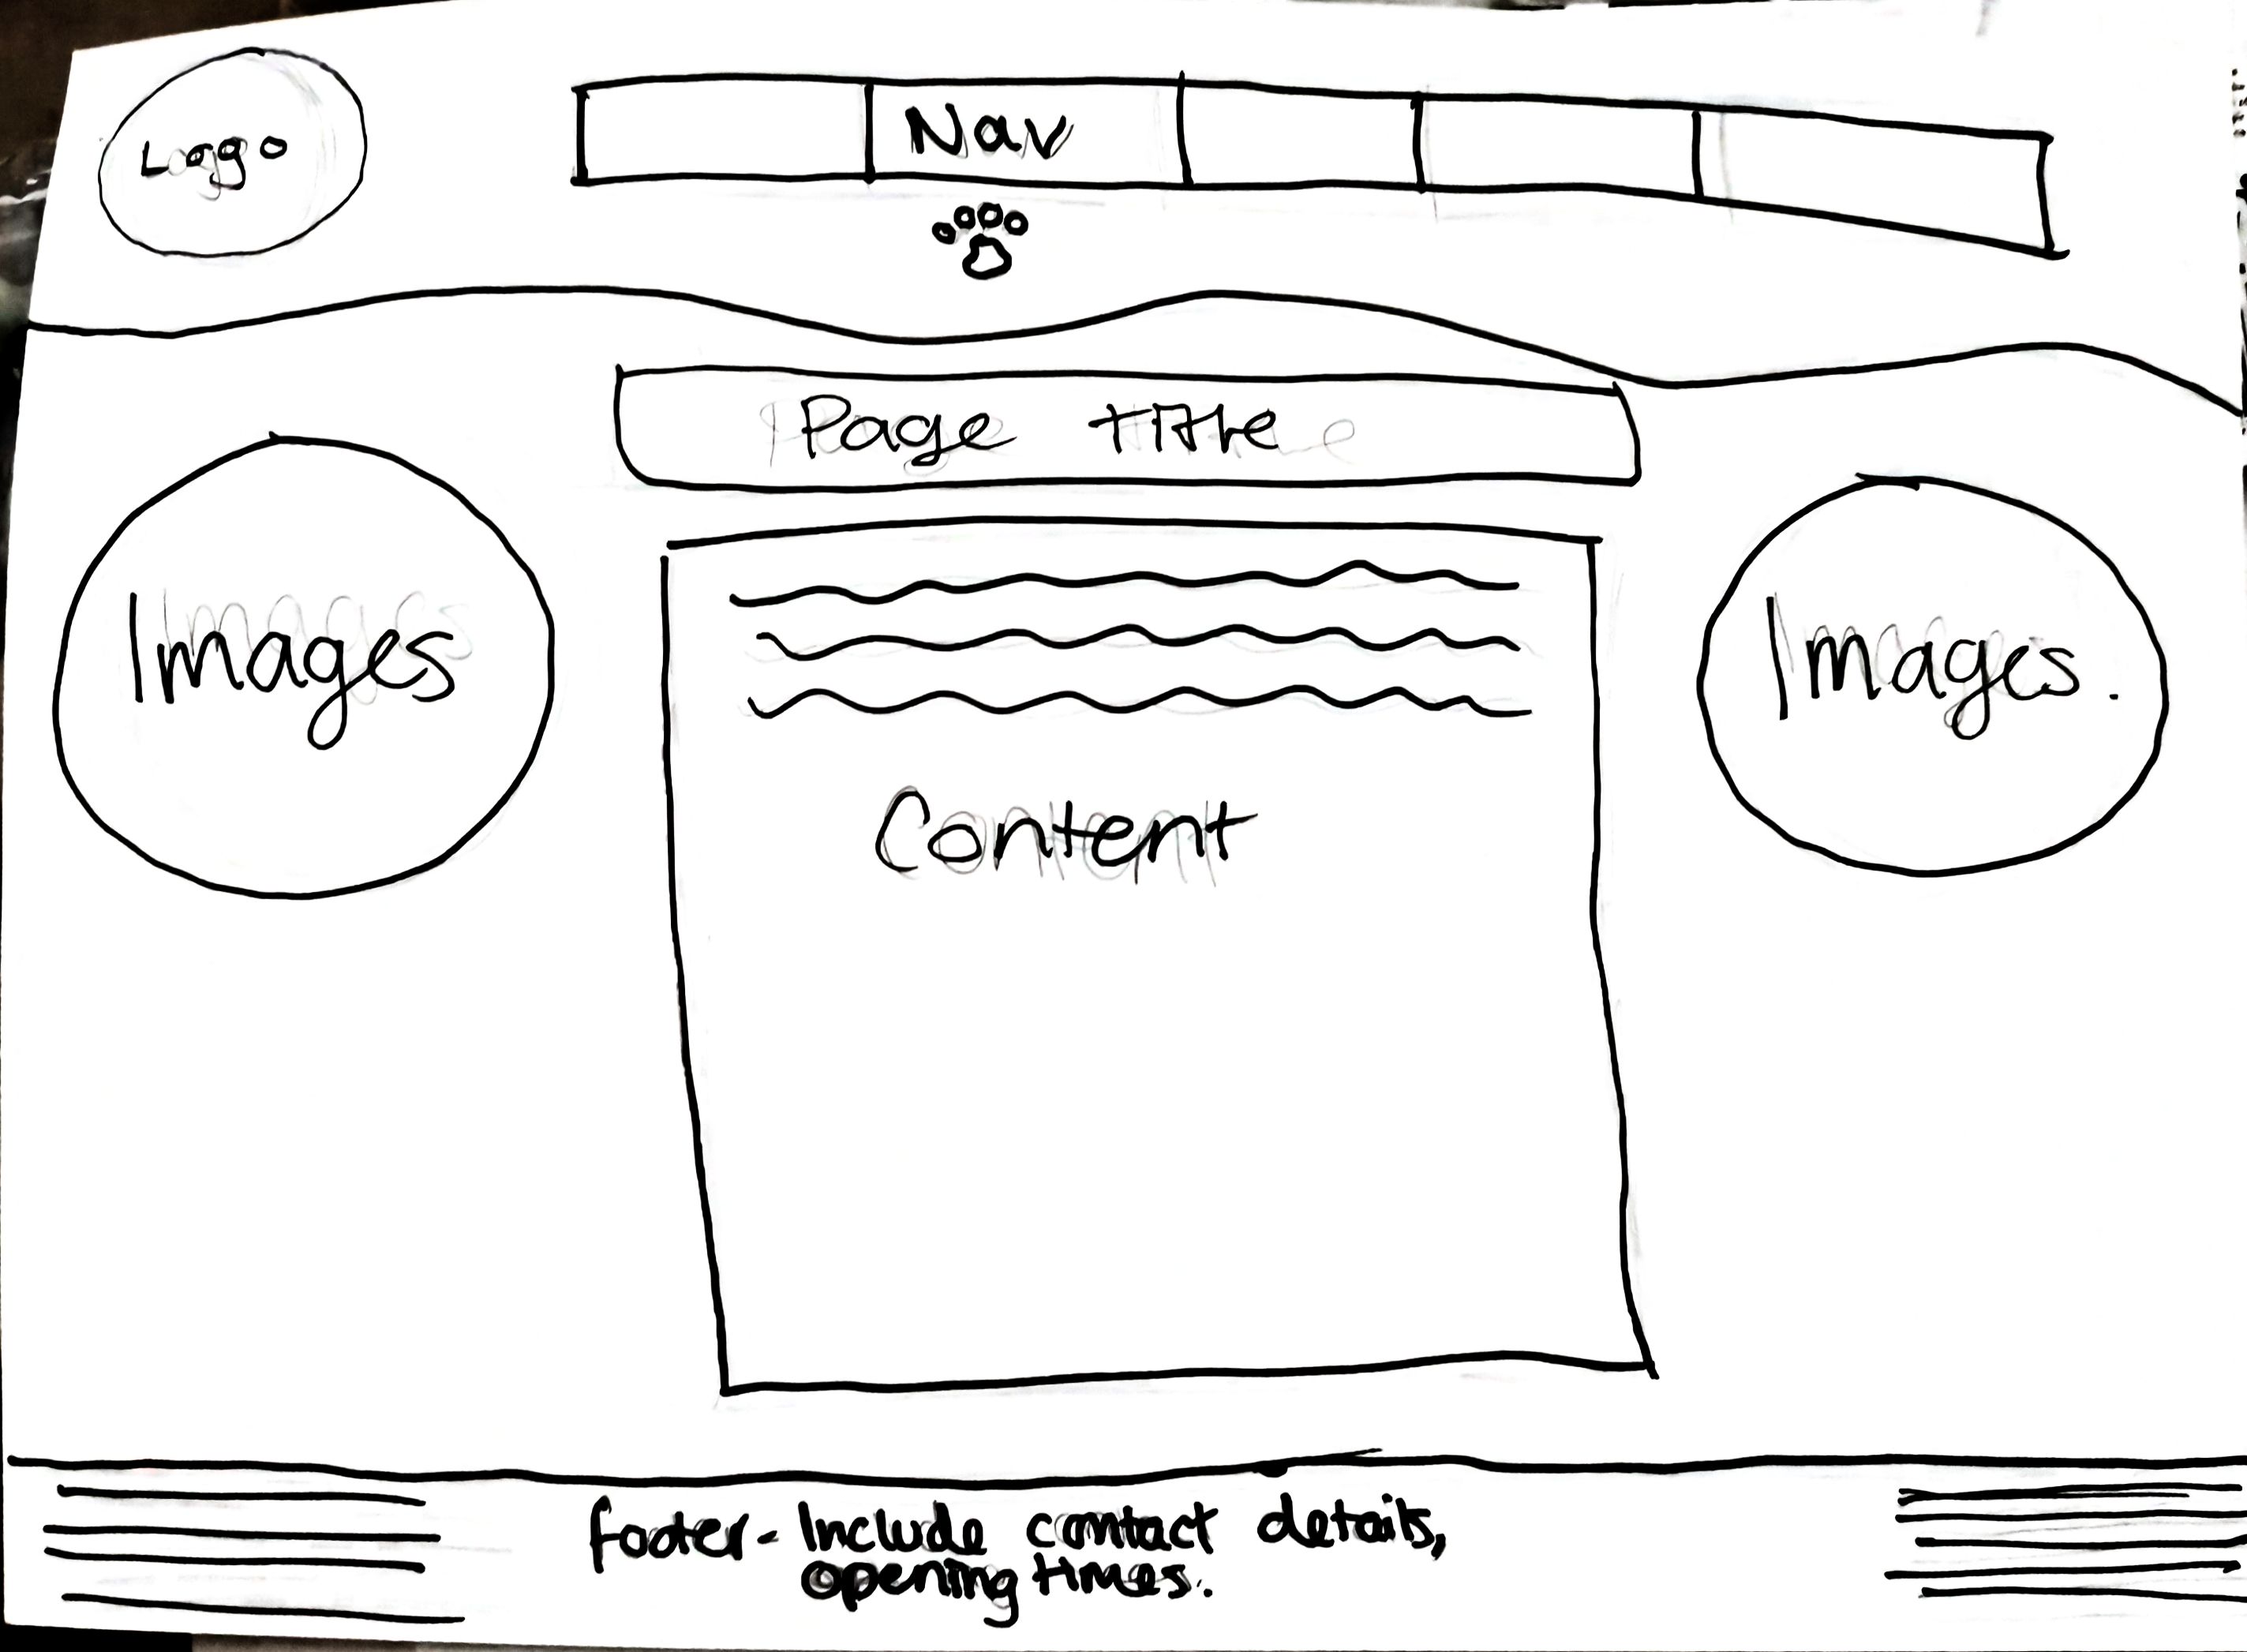 Logo
Nav
Page title
Images
Images.
Content
footer - Include contact details,
opening times.